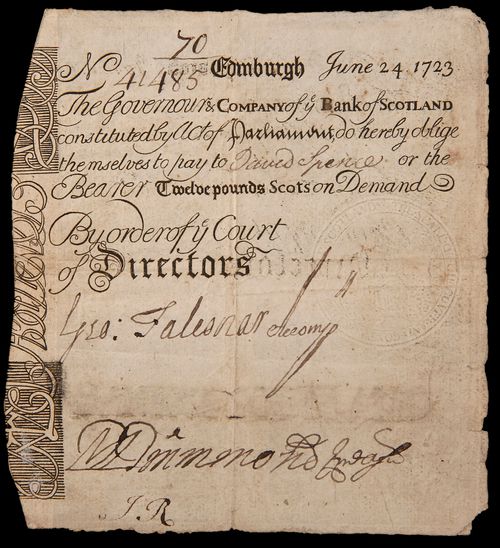 70
No 41483 Edinburgh June 24 1723
The Governour & COMPANY of ye Bank of SCOTLAND
constituted by Act of Parliament, do hereby oblige
themselves to pay to David Spence or the
Bearer Twelve pounds Scots on Demand
By order of ye Court
of Directors
Geo:
Drummond
J.R